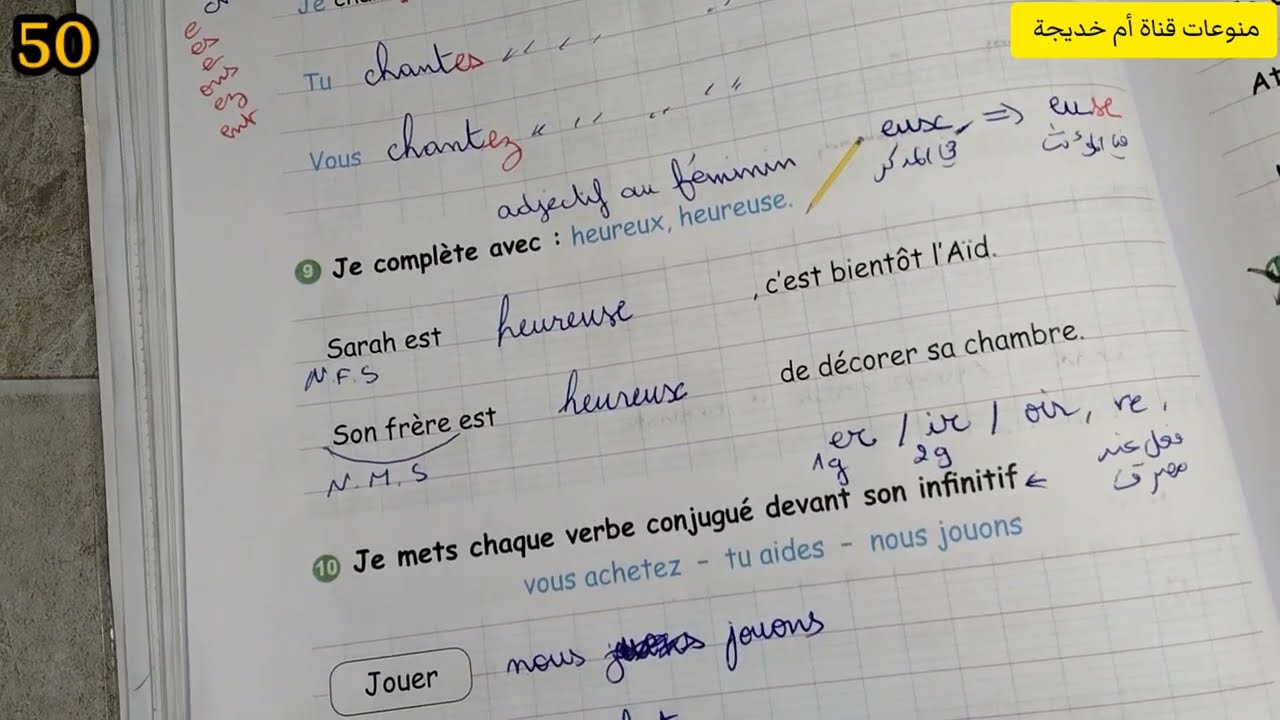 50
منوعات قناة أم خديجة
Je
e
es
e
ons
ez
ent
Tu chantes " " "
Vous chantez " " " " "
adjectif au féminin
eux, => euse
في المذكر في المؤنث
9 Je complète avec : heureux, heureuse.
Sarah est heureuse , c'est bientôt l'Aïd.
N.F.S
Son frère est heureux de décorer sa chambre.
N.M.S
er / ir / oir, re,
1g 2g
فعل غير
مصرف
10 Je mets chaque verbe conjugué devant son infinitif ←
vous achetez - tu aides - nous jouons
Jouer nous jouons